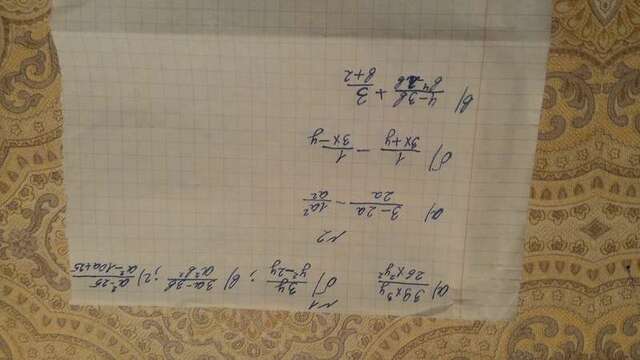 №1
а) 39x³y / 26x²y² б) 3y / y²-2y ; в) 3a-3b / a²b² ; г) a²-25 / a²-10a+25
№2
а) 3-2a / 2a - 1a² / a²
б) 1 / 3x+y - 1 / 3x-y
в) 4-3b / - 3 / b+2